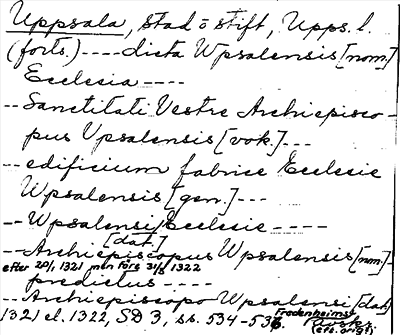 Uppsala, stad o stift, Upps. l.
(forts.) ---- dicta Wpsalensis [nom.]
Ecclesia ----
-- Sanctitati Vestre Archiepisco-
pus Vpsalensis [vok.] ---
-- edificium fabrice Ecclesie
Wpsalensis [gen.] ---
-- Wpsalensi Ecclesie ----
[dat.]
-- Archiepiscopus Wpsalensis [nom.]
efter 20/1 1321 men före 31/3 1322
predictus ----
-- Archiepiscopo Wpsalensi [dat.]
1321 el. 1322, SD 3, ss. 534-536.